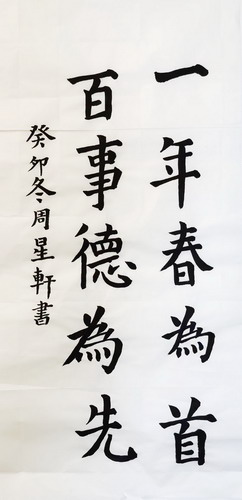 一年春為首
百事德為先
癸卯冬周星軒書